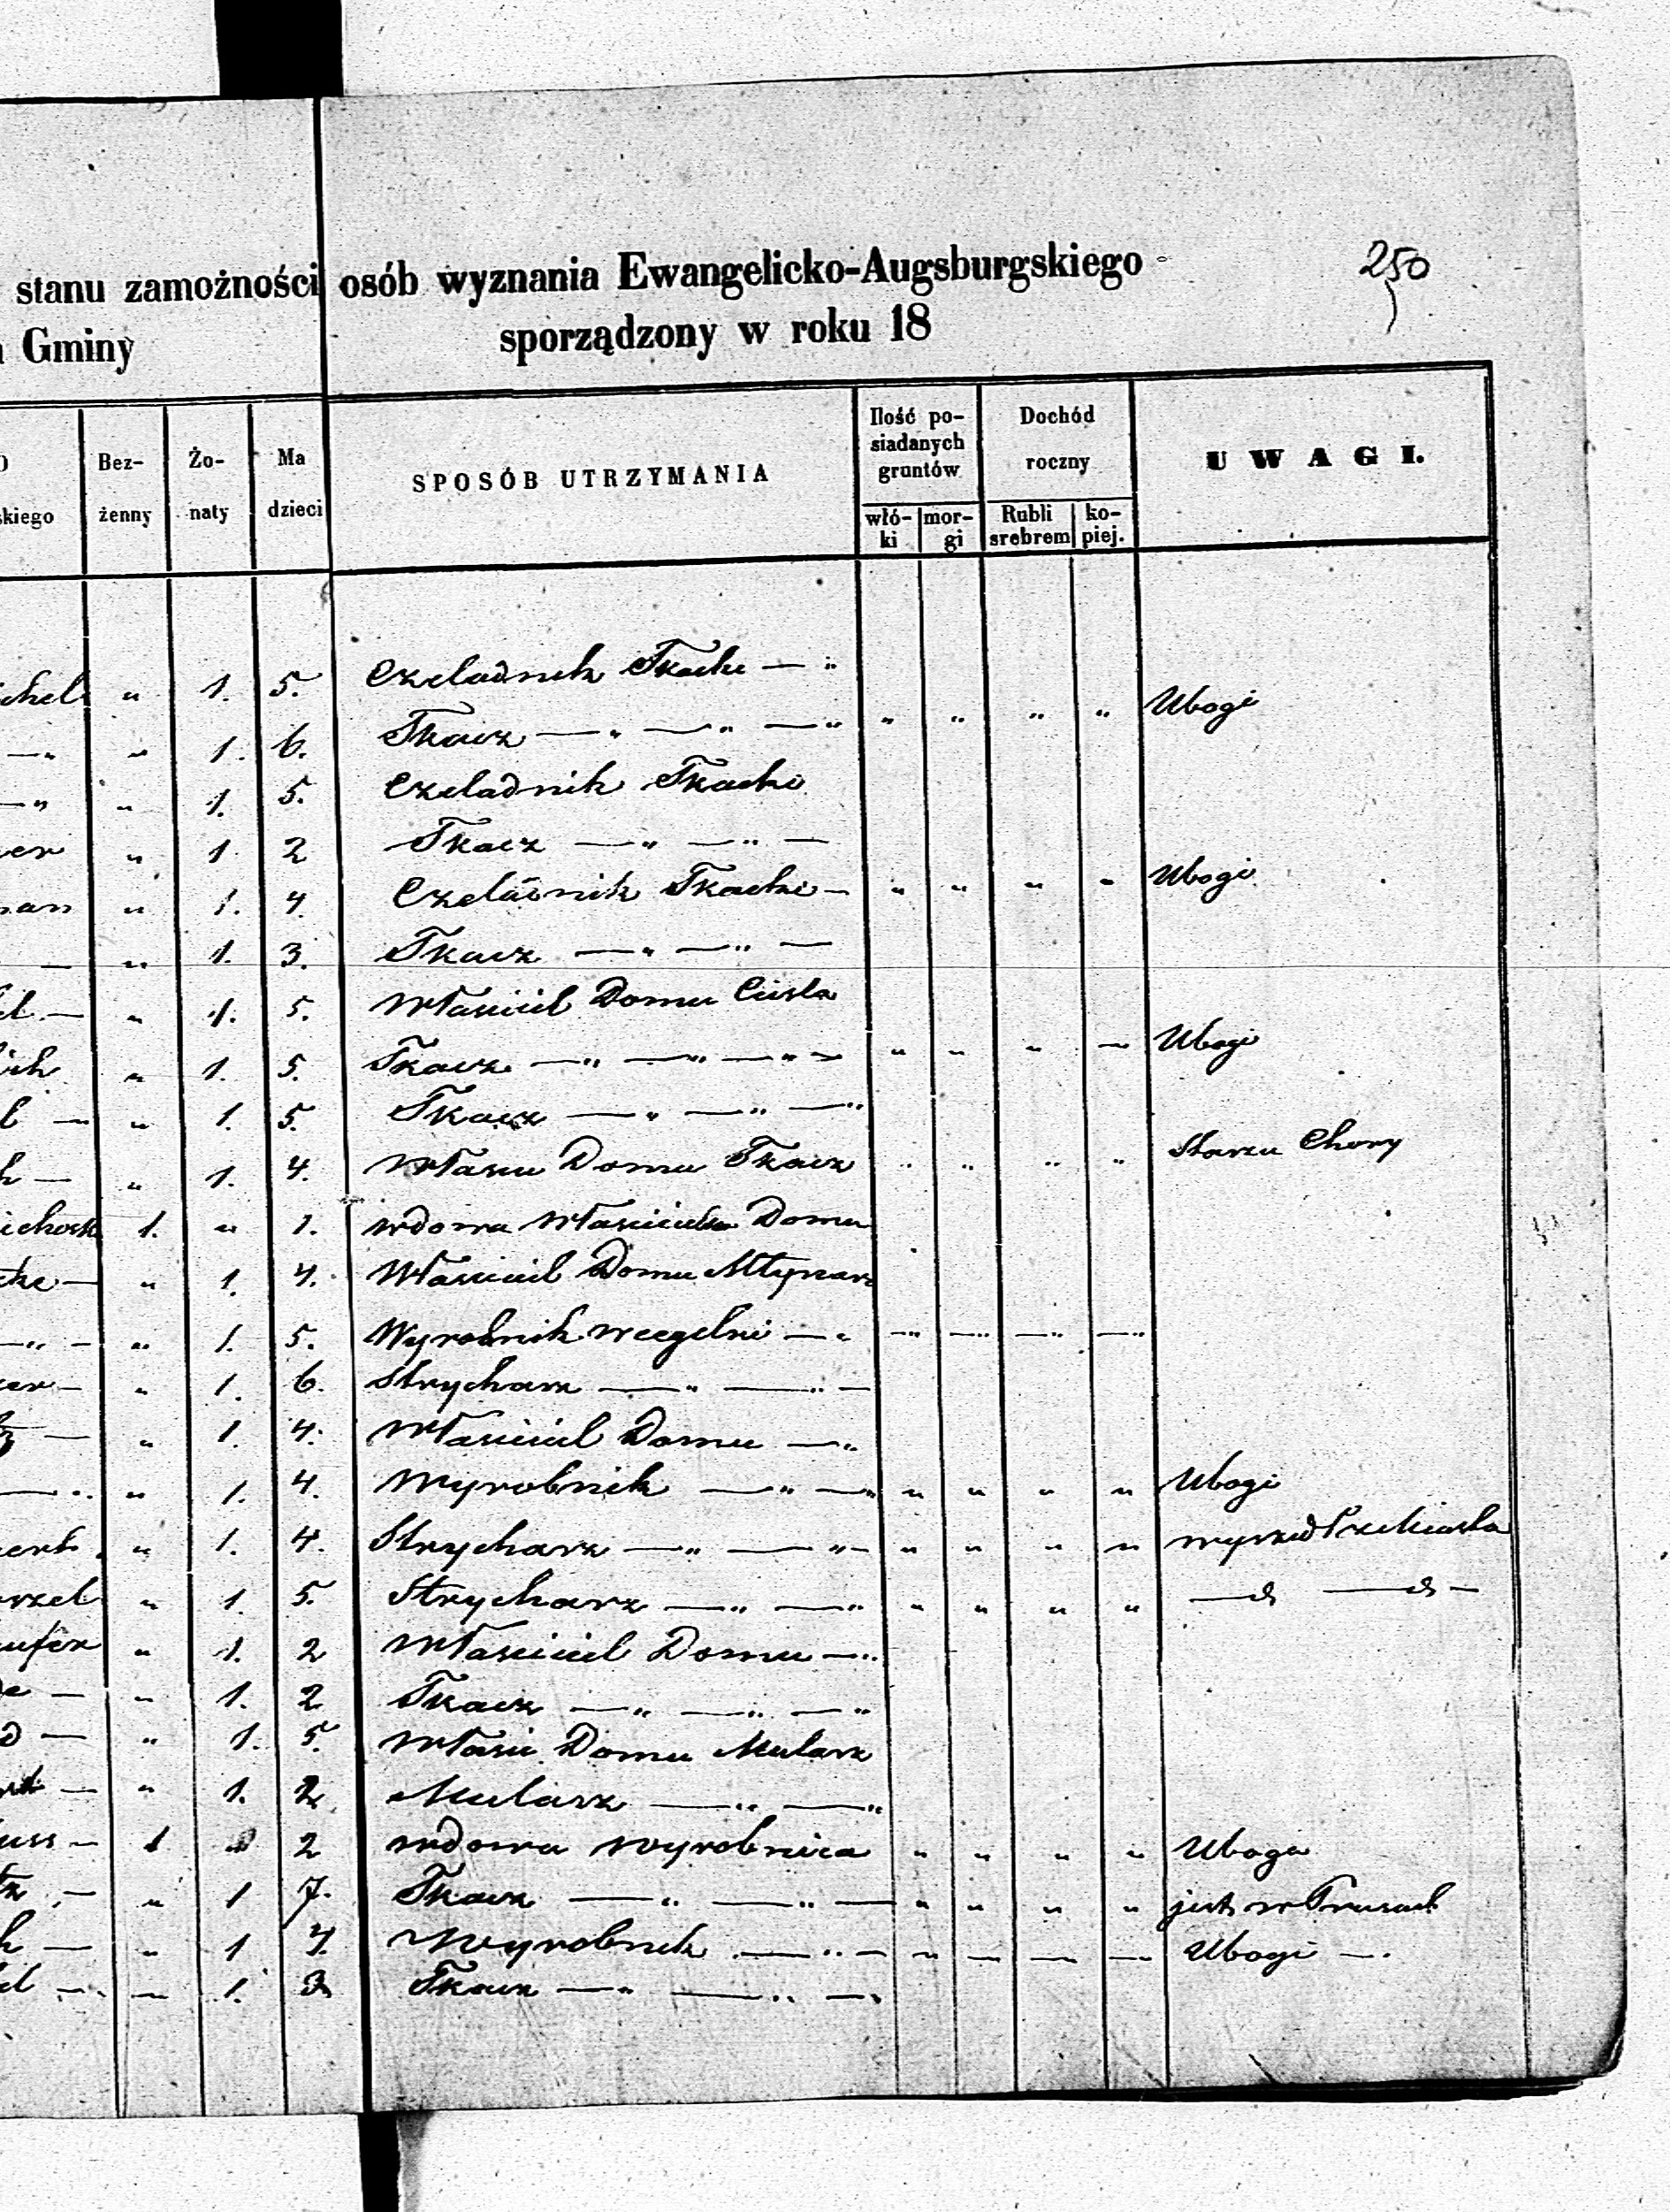 250
stanu zamożności osób wyznania Ewangelicko-Augsburgskiego
Gminy sporządzony w roku 18
skiego Bez-żenny Żo-naty Ma dzieci SPOSÓB UTRZYMANIA Ilość po-siadanych gruntów Dochód roczny UWAGI.
włó-ki mor-gi Rubli srebrem ko-piej.
chel „ 1. 5. Czeladnik Tkacki — „ Ubogi
— „ „ 1. 6. Tkacz — „ — „ — „ „ „ „ „
— „ „ 1. 5. Czeladnik Tkacki
er „ 1. 2 Tkacz — „ — „ —
man „ 1. 4. Czeladnik Tkacki — „ „ „ „ Ubogi
— „ 1. 3. Tkacz — „ — „ —
el — „ 1. 5. Właściciel Domu Cieśla
ich „ 1. 5. Tkacz — „ — „ — „ — „ „ „ — Ubogi
l — „ 1. 5. Tkacz — „ — „ — „
h — „ 1. 4. Właści Domu Tkacz „ „ „ „ Starzec Chory
ichorsk 1. „ 1. wdowa Właścicielka Domu
tke — „ 1. 4. Właściciel Domu Młynarz
— „ — „ 1. 5. Wyrobnik w cegelni — „ — „ — „ — „ — „
er — „ 1. 6. Strycharz — „ — „ —
— „ 1. 4. Właściciel Domu — „
— „ „ 1. 4. Wyrobnik — „ — „ „ „ „ „ Ubogi
ert „ 1. 4. Strycharz — „ — „ — „ „ „ „ wyszedł z Miasta
rzel „ 1. 5. Strycharz — „ — „ „ „ „ „ — d — d —
ufer „ 1. 2 Właściciel Domu — „
de — „ 1. 2 Tkacz — „ — „ — „
d — „ 1. 5. Właści. Domu Mularz
— „ 1. 2 Mularz — „ — „
uss — 1 „ 2 wdowa wyrobnica „ „ „ „ Uboga
tz — „ 1 7. Tkacz — „ — „ — „ „ „ „ jest w Prusach
h — „ 1 4. Wyrobnik — „ — „ — — — Ubogi — .
el — „ — 1. 3. Tkacz — „ — „ — „